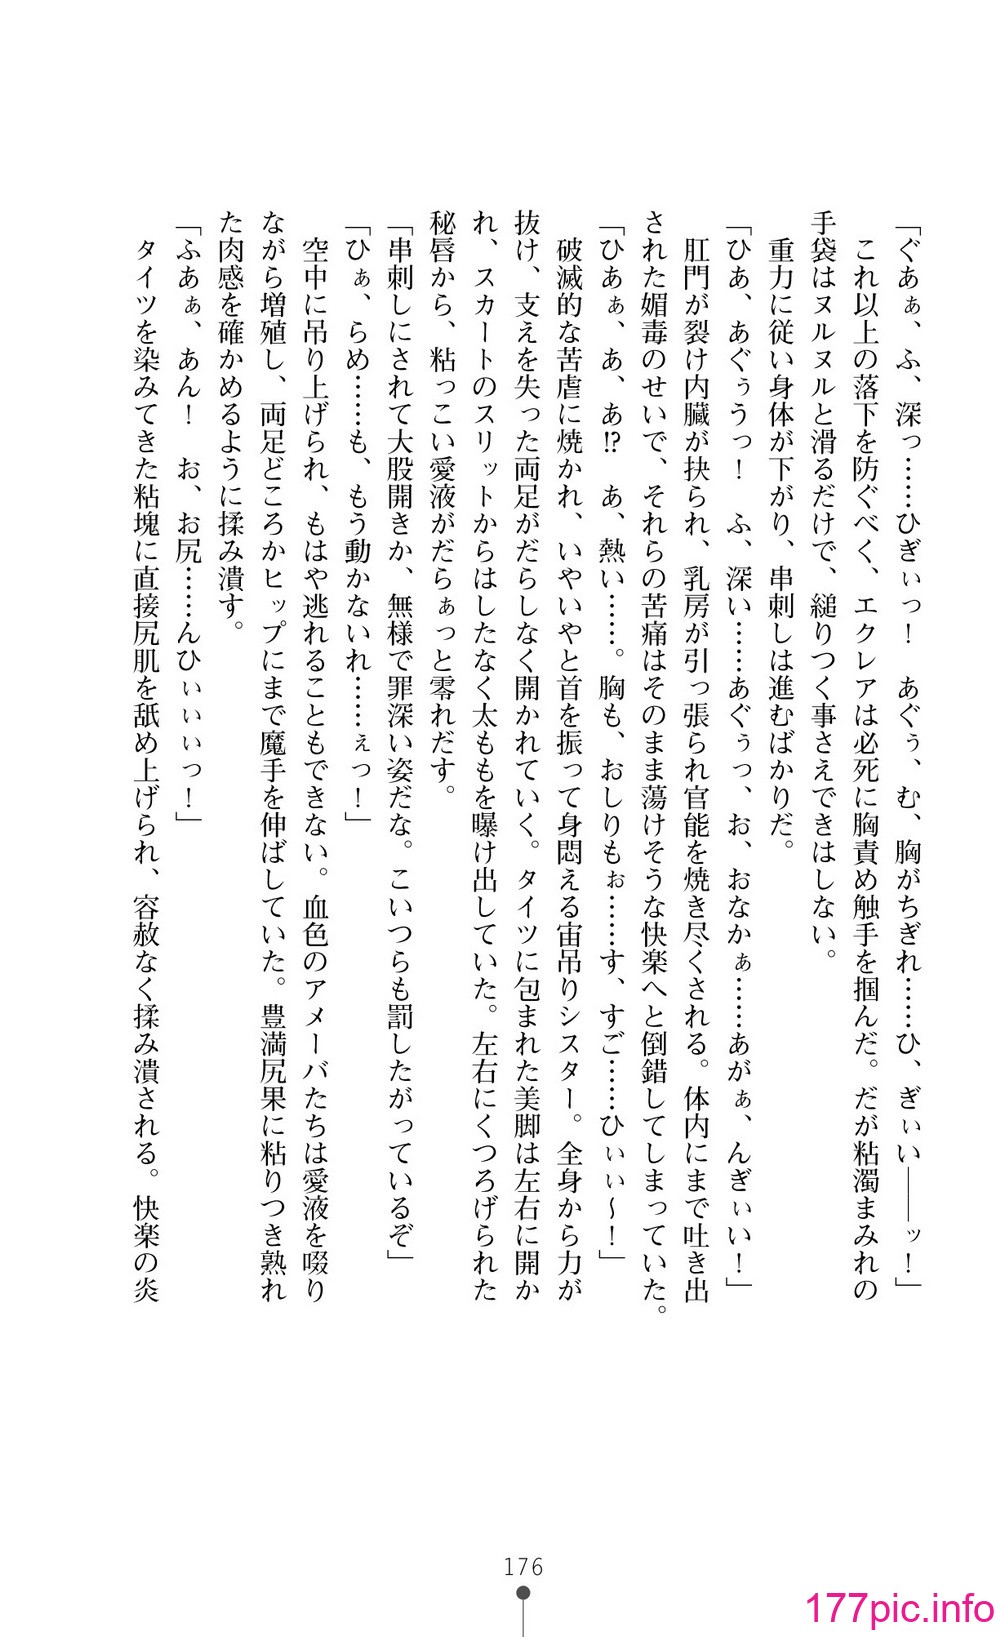 「ぐあぁ、ふ、深っ……ひぎぃっ！　あぐぅ、む、胸がちぎれ……ひ、ぎぃい――ッ！」
　これ以上の落下を防ぐべく、エクレアは必死に胸責め触手を掴んだ。だが粘濁まみれの
手袋はヌルヌルと滑るだけで、縋りつく事さえできはしない。
　重力に従い身体が下がり、串刺しは進むばかりだ。
「ひあ、あぐぅうっ！　ふ、深い……あぐぅっ、お、おなかぁ……あがぁ、んぎぃい！」
　肛門が裂け内臓が抉られ、乳房が引っ張られ官能を焼き尽くされる。体内にまで吐き出
された媚毒のせいで、それらの苦痛はそのまま蕩けそうな快楽へと倒錯してしまっていた。
「ひあぁ、あ、あ⁉　あ、熱い……。胸も、おしりもぉ……す、すご……ひぃぃ～！」
　破滅的な苦虐に焼かれ、いやいやと首を振って身悶える宙吊りシスター。全身から力が
抜け、支えを失った両足がだらしなく開かれていく。タイツに包まれた美脚は左右に開か
れ、スカートのスリットからはしたなく太ももを曝け出していた。左右にくつろげられた
秘唇から、粘っこい愛液がだらぁっと零れだす。
「串刺しにされて大股開きか、無様で罪深い姿だな。こいつらも罰したがっているぞ」
「ひぁ、らめ……も、もう動かないれ……ぇっ！」
　空中に吊り上げられ、もはや逃れることもできない。血色のアメーバたちは愛液を啜り
ながら増殖し、両足どころかヒップにまで魔手を伸ばしていた。豊満尻果に粘りつき熟れ
た肉感を確かめるように揉み潰す。
「ふあぁ、あん！　お、お尻……んひぃぃぃっ！」
　タイツを染みてきた粘塊に直接尻肌を舐め上げられ、容赦なく揉み潰される。快楽の炎
176
177pic.info